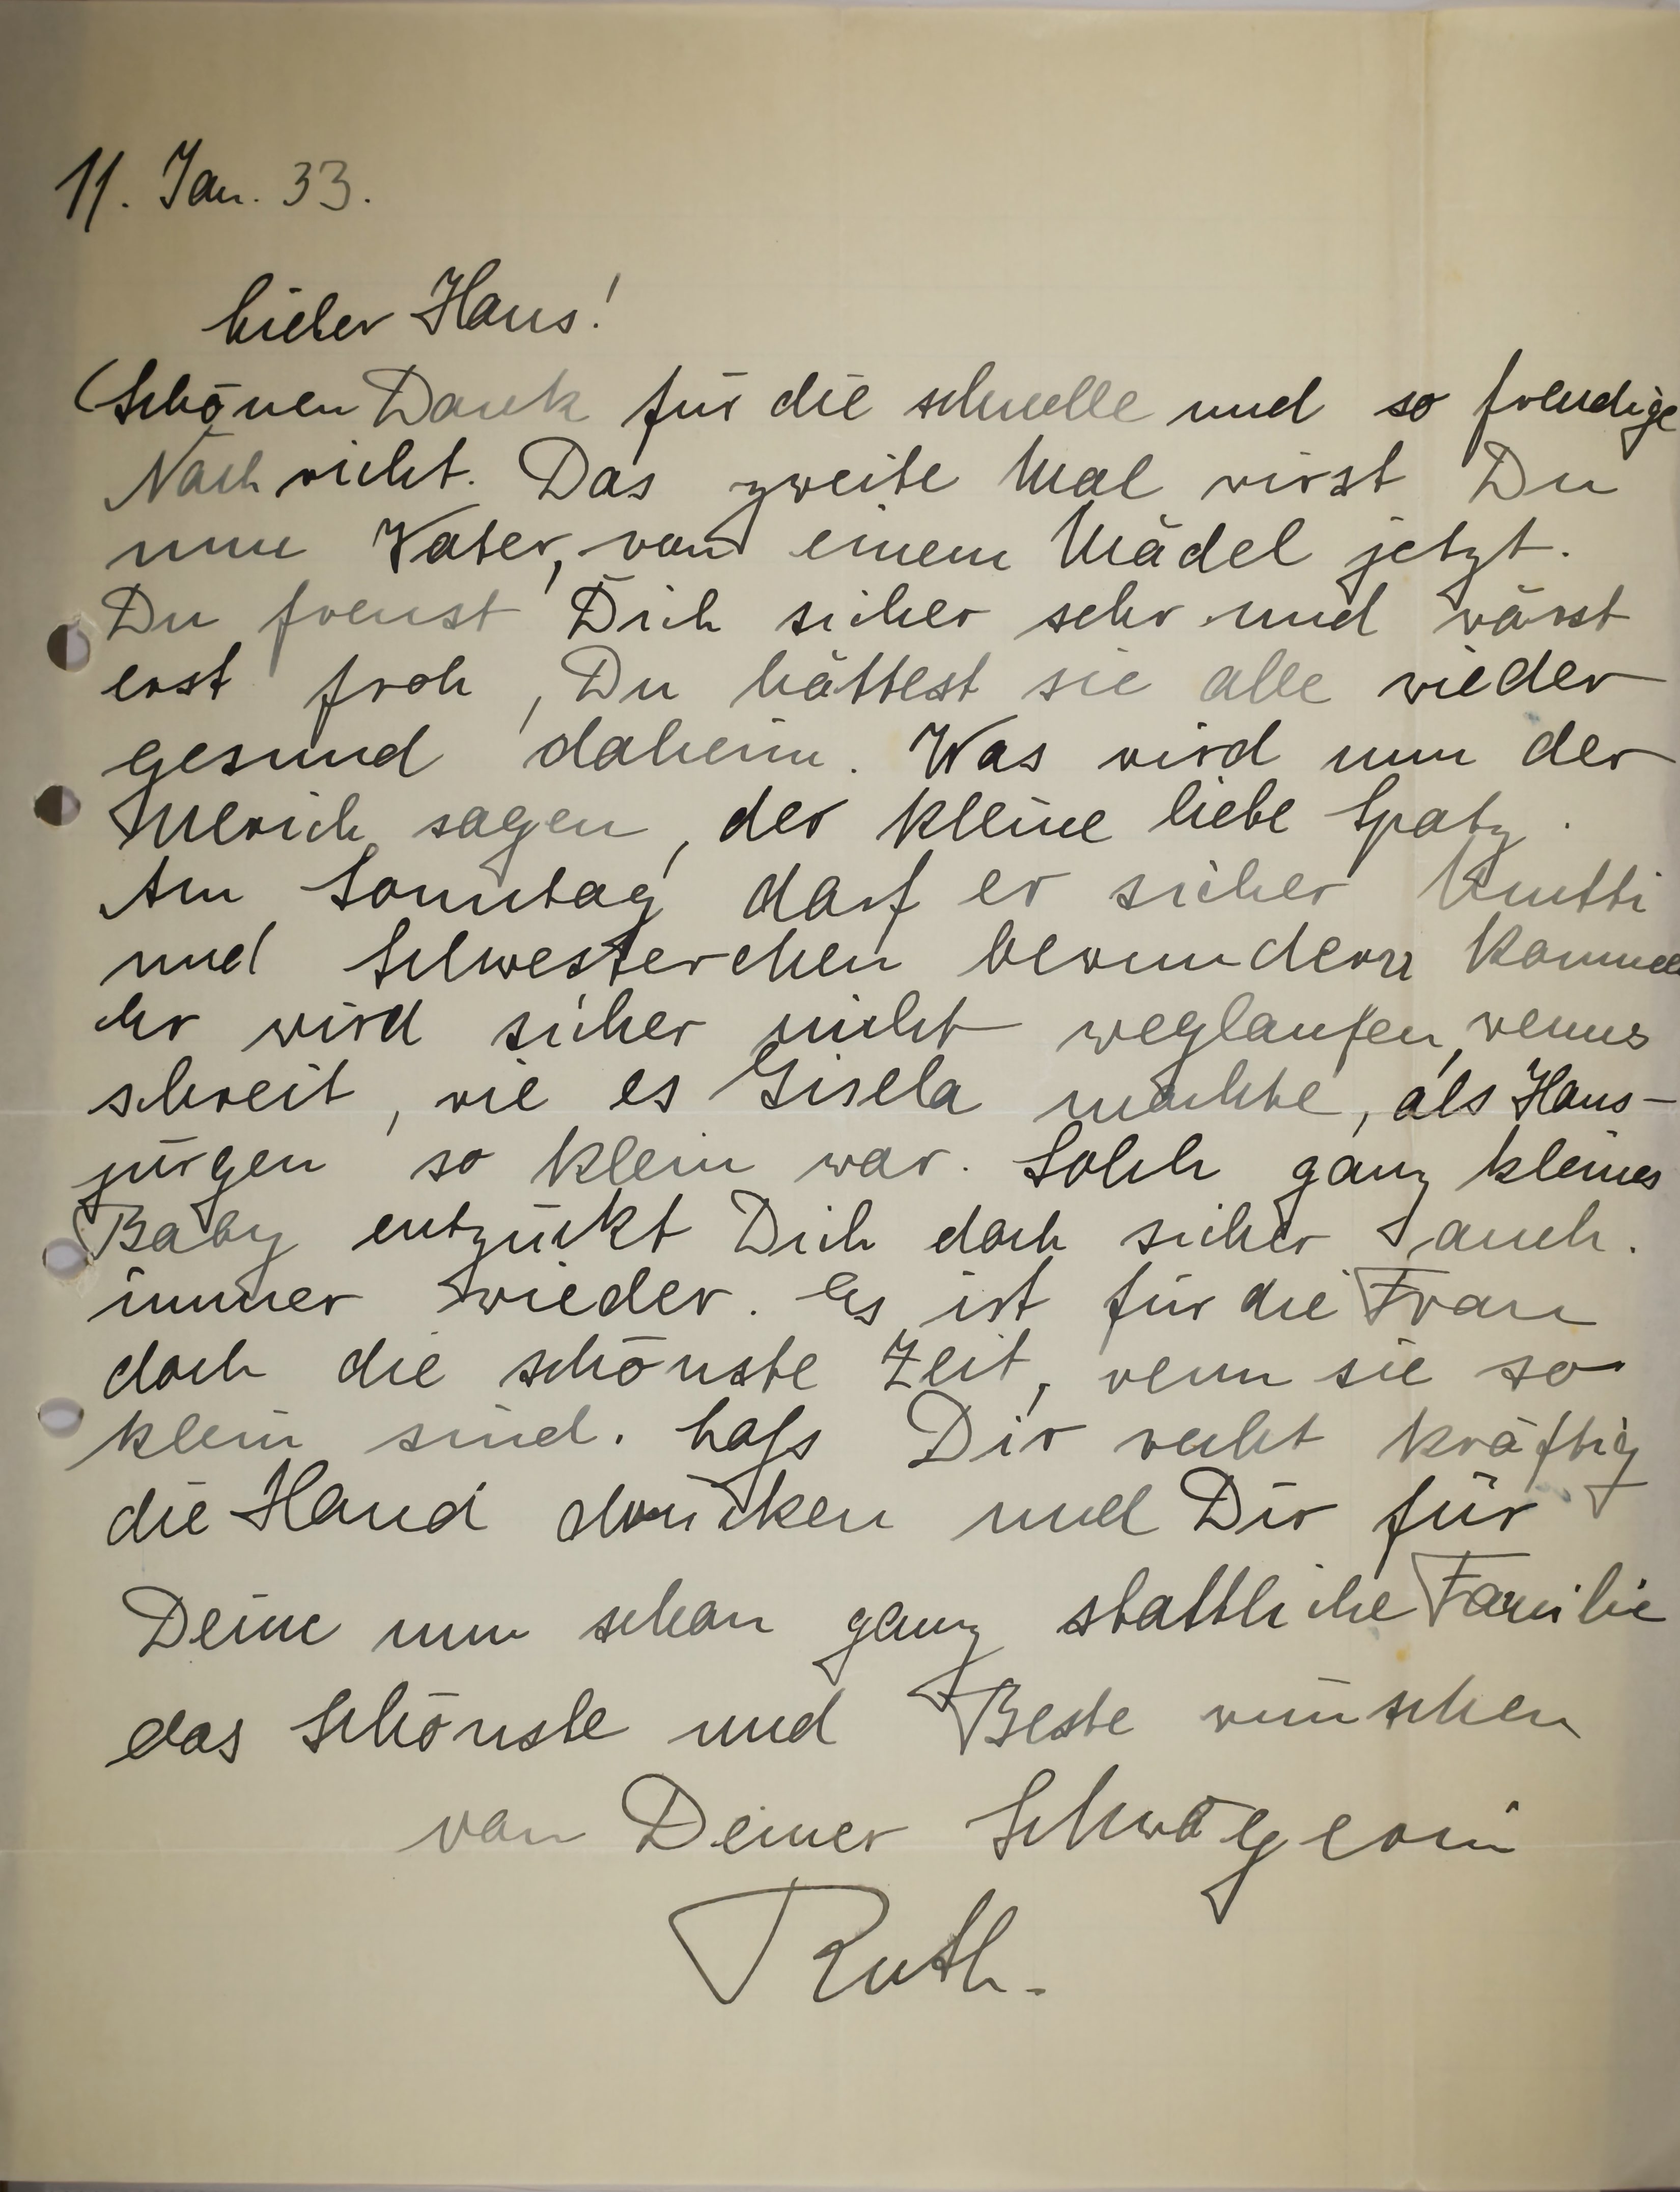 11. Jan. 33.
Lieber Hans!
Schönen Dank für die schnelle und so freudige
Nachricht. Das zweite Mal wirst Du
nun Vater, von einem Mädel jetzt.
Du freust Dich sicher sehr und wärst
erst froh, Du hättest sie alle wieder
gesund daheim. Was wird nun der
Ulrich sagen, der kleine liebe Spatz.
Am Sonntag darf er sicher Mutti
und Schwesterchen bewundern kommen
Er wird sicher nicht weglaufen, wenns
schreit, wie es Gisela machte, als Hans-
jürgen so klein war. Solch ganz kleines
Baby entzückt Dich doch sicher auch.
immer wieder. Es ist für die Frau
doch die schönste Zeit, wenn sie so
klein sind. Laß Dir recht kräftig
die Hand drücken und Dir für
Deine nun schon ganz stattliche Familie
das Schönste und Beste wünschen
von Deiner Schwägerin
Ruth.